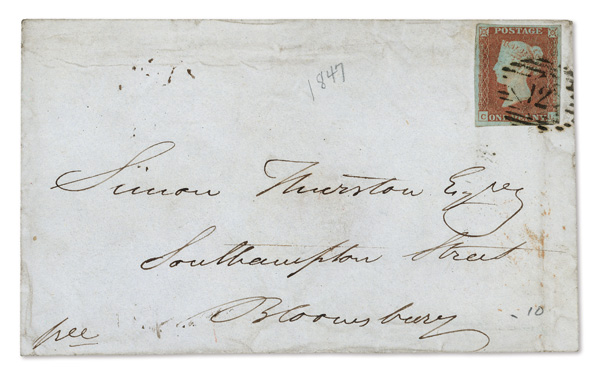 POSTAGE
ONE PENNY
12
1847
Simon Thurston Esqre
Southampton Street
Bloomsbury
10